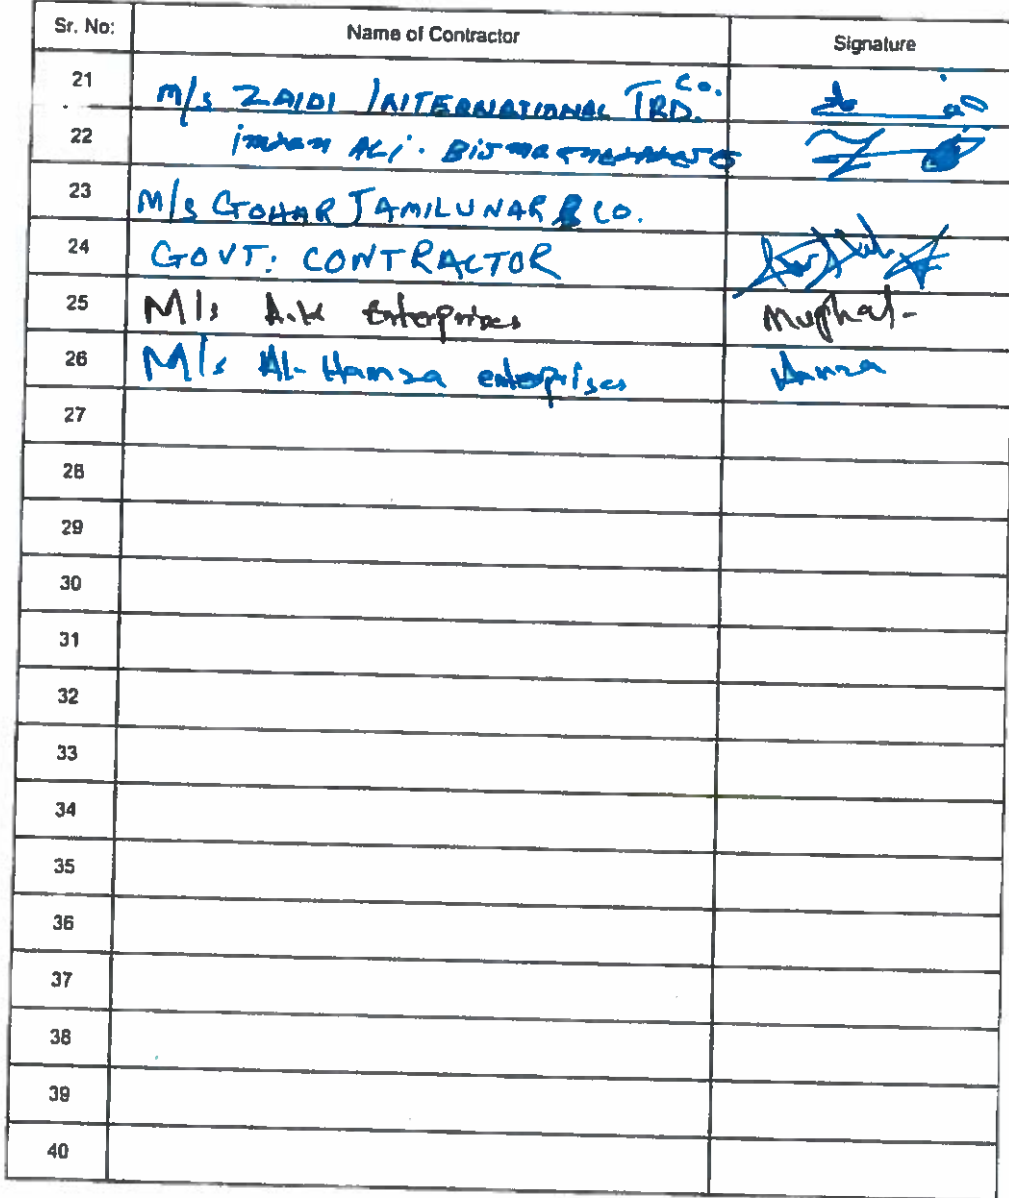 Sr. No: Name of Contractor Signature
21 M/s ZAIDI INTERNATIONAL TRD. Co.
22 imran ALi. Bisma
23 M/s GOHAR JAMILUNAR & CO.
24 GOVT: CONTRACTOR
25 M/s A.K Enterprises Mughal-
26 M/s Al-Hamza enterprises Hamza
27
28
29
30
31
32
33
34
35
36
37
38
39
40